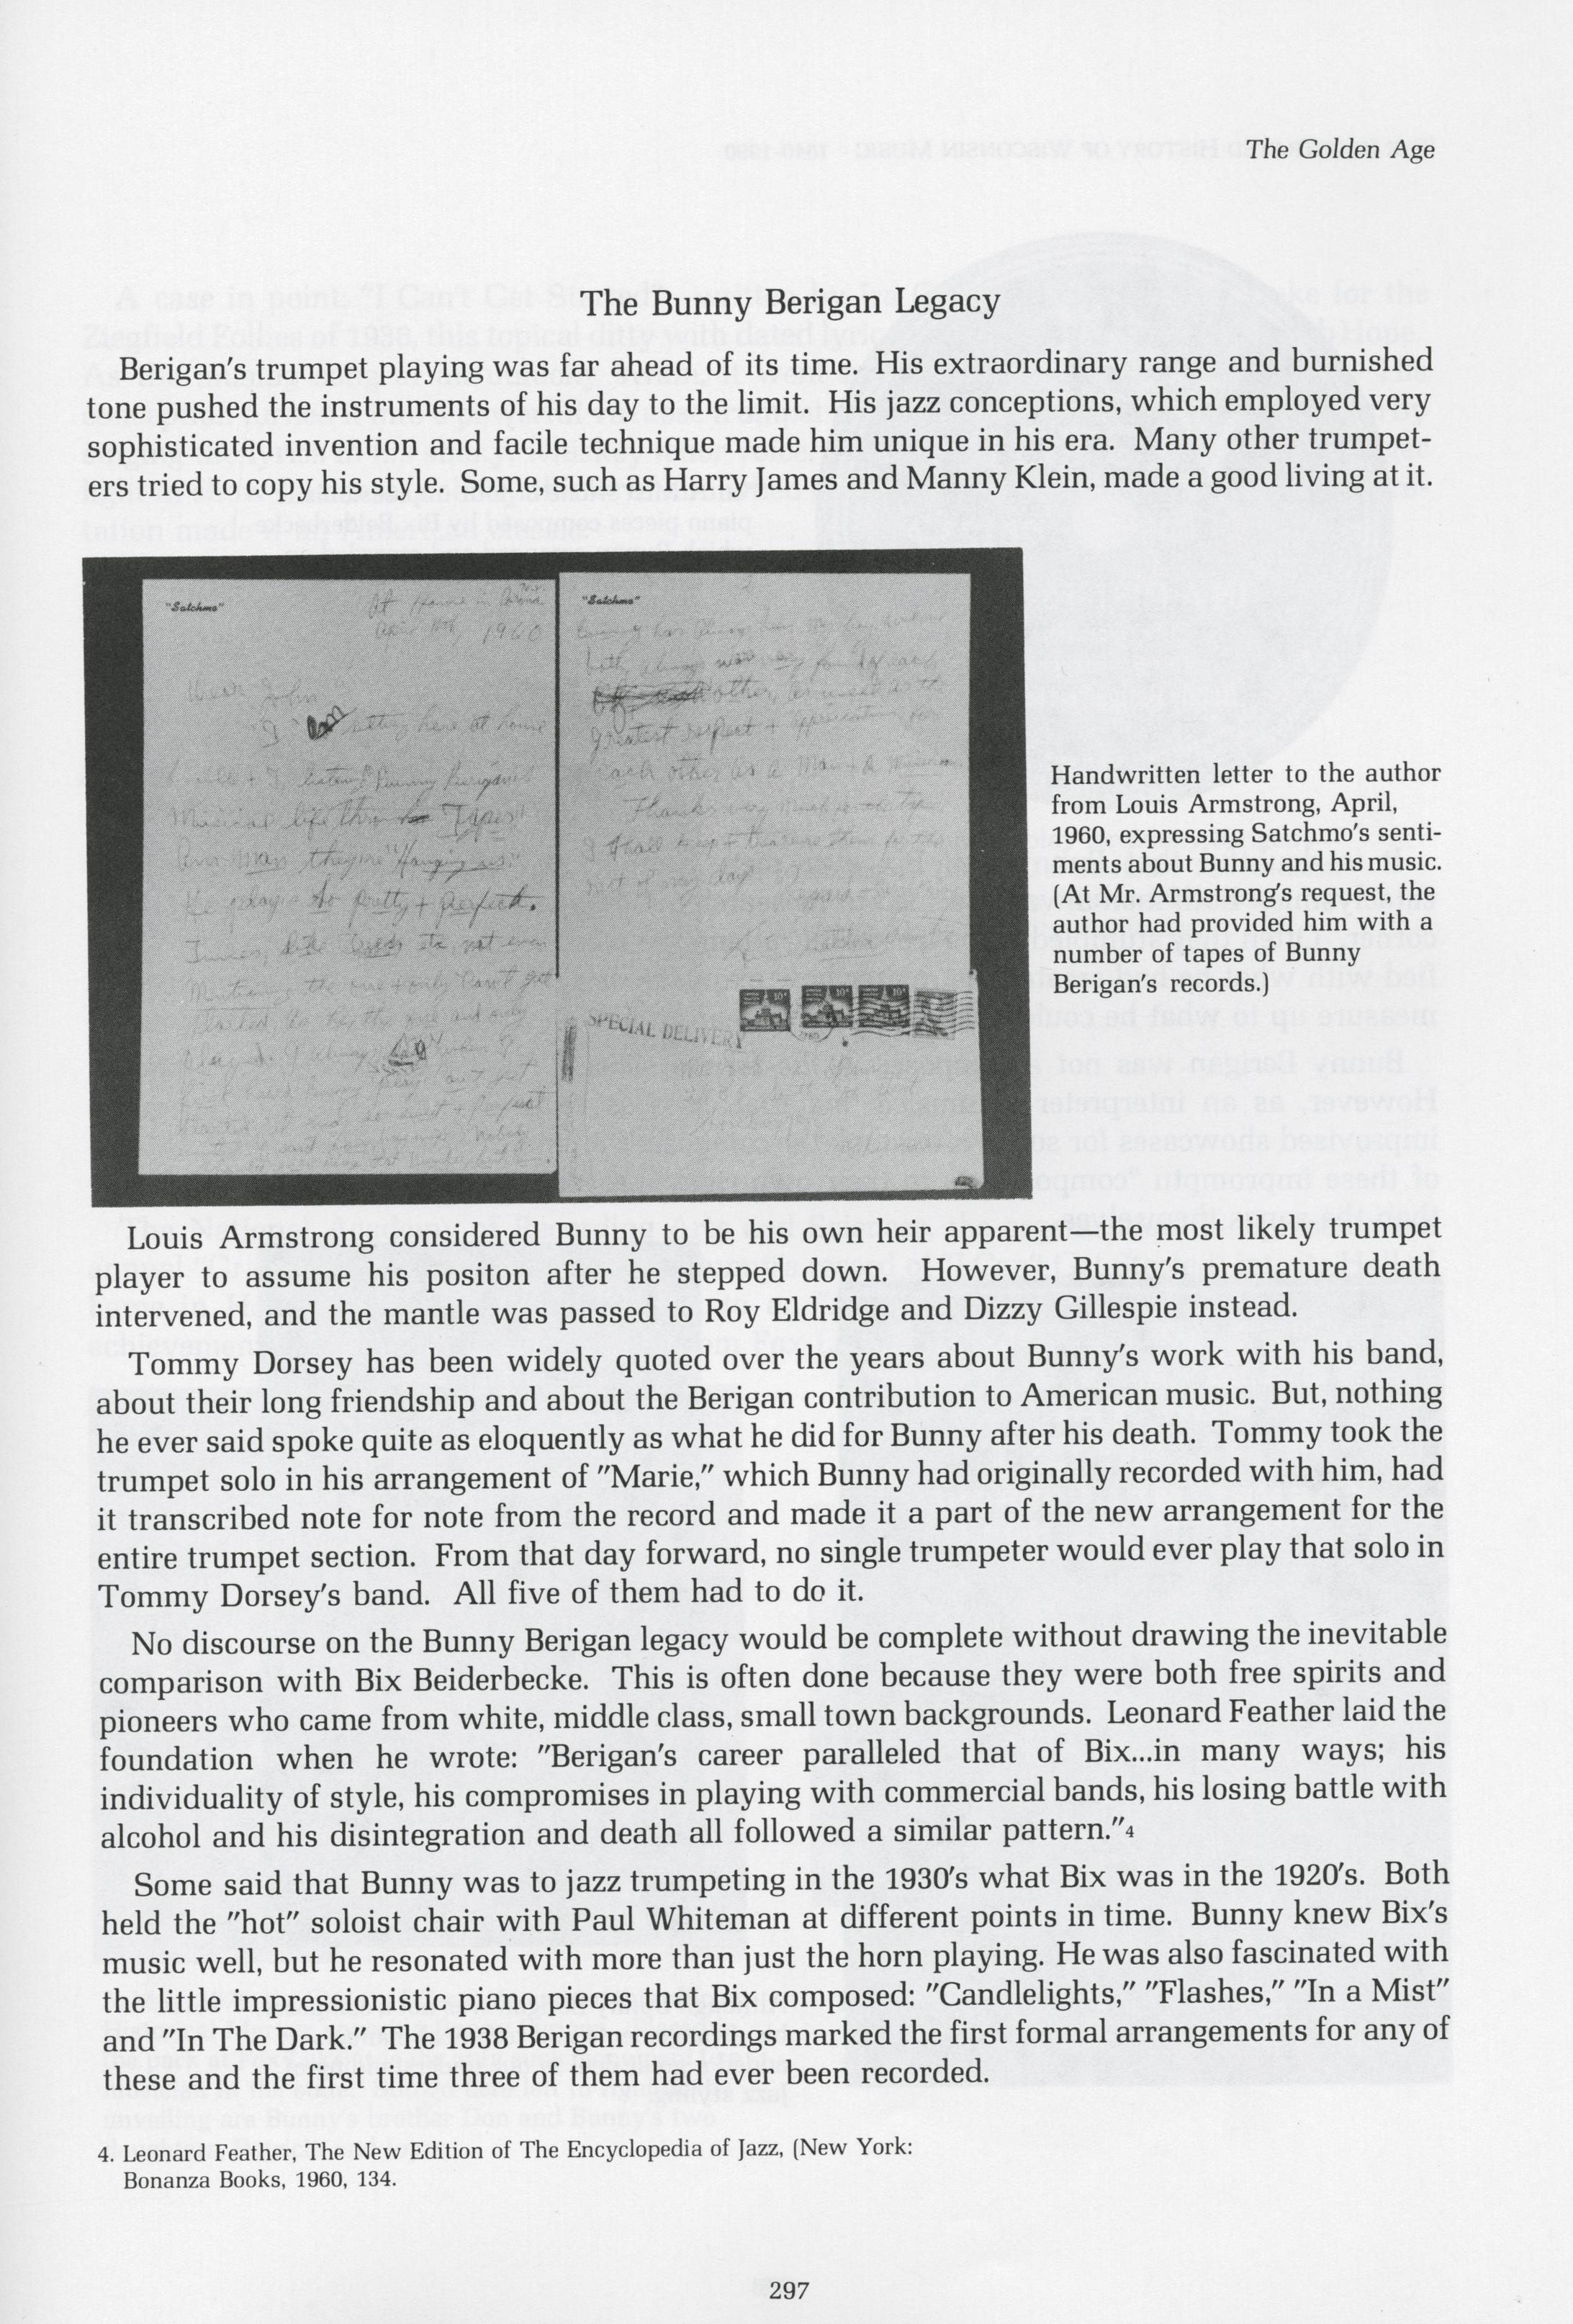 The Golden Age
The Bunny Berigan Legacy
Berigan's trumpet playing was far ahead of its time. His extraordinary range and burnished
tone pushed the instruments of his day to the limit. His jazz conceptions, which employed very
sophisticated invention and facile technique made him unique in his era. Many other trumpet-
ers tried to copy his style. Some, such as Harry James and Manny Klein, made a good living at it.
"Satchmo"
At Home in
April 1960
Dear John
I am sitting here at home
Musical life thru Tapes"
man they're "Hanging
He plays so pretty + perfect.
"Satchmo"
both always was very fond of each
other,
greatest respect + appreciation for
each other as a Man + a
Thanks very much for
I shall keep + treasure them for the
rest of my days
SPECIAL DELIVERY
10¢
10¢
10¢
Handwritten letter to the author
from Louis Armstrong, April,
1960, expressing Satchmo's senti-
ments about Bunny and his music.
(At Mr. Armstrong's request, the
author had provided him with a
number of tapes of Bunny
Berigan's records.)
Louis Armstrong considered Bunny to be his own heir apparent—the most likely trumpet
player to assume his positon after he stepped down. However, Bunny's premature death
intervened, and the mantle was passed to Roy Eldridge and Dizzy Gillespie instead.
Tommy Dorsey has been widely quoted over the years about Bunny's work with his band,
about their long friendship and about the Berigan contribution to American music. But, nothing
he ever said spoke quite as eloquently as what he did for Bunny after his death. Tommy took the
trumpet solo in his arrangement of "Marie," which Bunny had originally recorded with him, had
it transcribed note for note from the record and made it a part of the new arrangement for the
entire trumpet section. From that day forward, no single trumpeter would ever play that solo in
Tommy Dorsey's band. All five of them had to do it.
No discourse on the Bunny Berigan legacy would be complete without drawing the inevitable
comparison with Bix Beiderbecke. This is often done because they were both free spirits and
pioneers who came from white, middle class, small town backgrounds. Leonard Feather laid the
foundation when he wrote: "Berigan's career paralleled that of Bix...in many ways; his
individuality of style, his compromises in playing with commercial bands, his losing battle with
alcohol and his disintegration and death all followed a similar pattern."4
Some said that Bunny was to jazz trumpeting in the 1930's what Bix was in the 1920's. Both
held the "hot" soloist chair with Paul Whiteman at different points in time. Bunny knew Bix's
music well, but he resonated with more than just the horn playing. He was also fascinated with
the little impressionistic piano pieces that Bix composed: "Candlelights," "Flashes," "In a Mist"
and "In The Dark." The 1938 Berigan recordings marked the first formal arrangements for any of
these and the first time three of them had ever been recorded.
4. Leonard Feather, The New Edition of The Encyclopedia of Jazz, (New York:
Bonanza Books, 1960, 134.
297